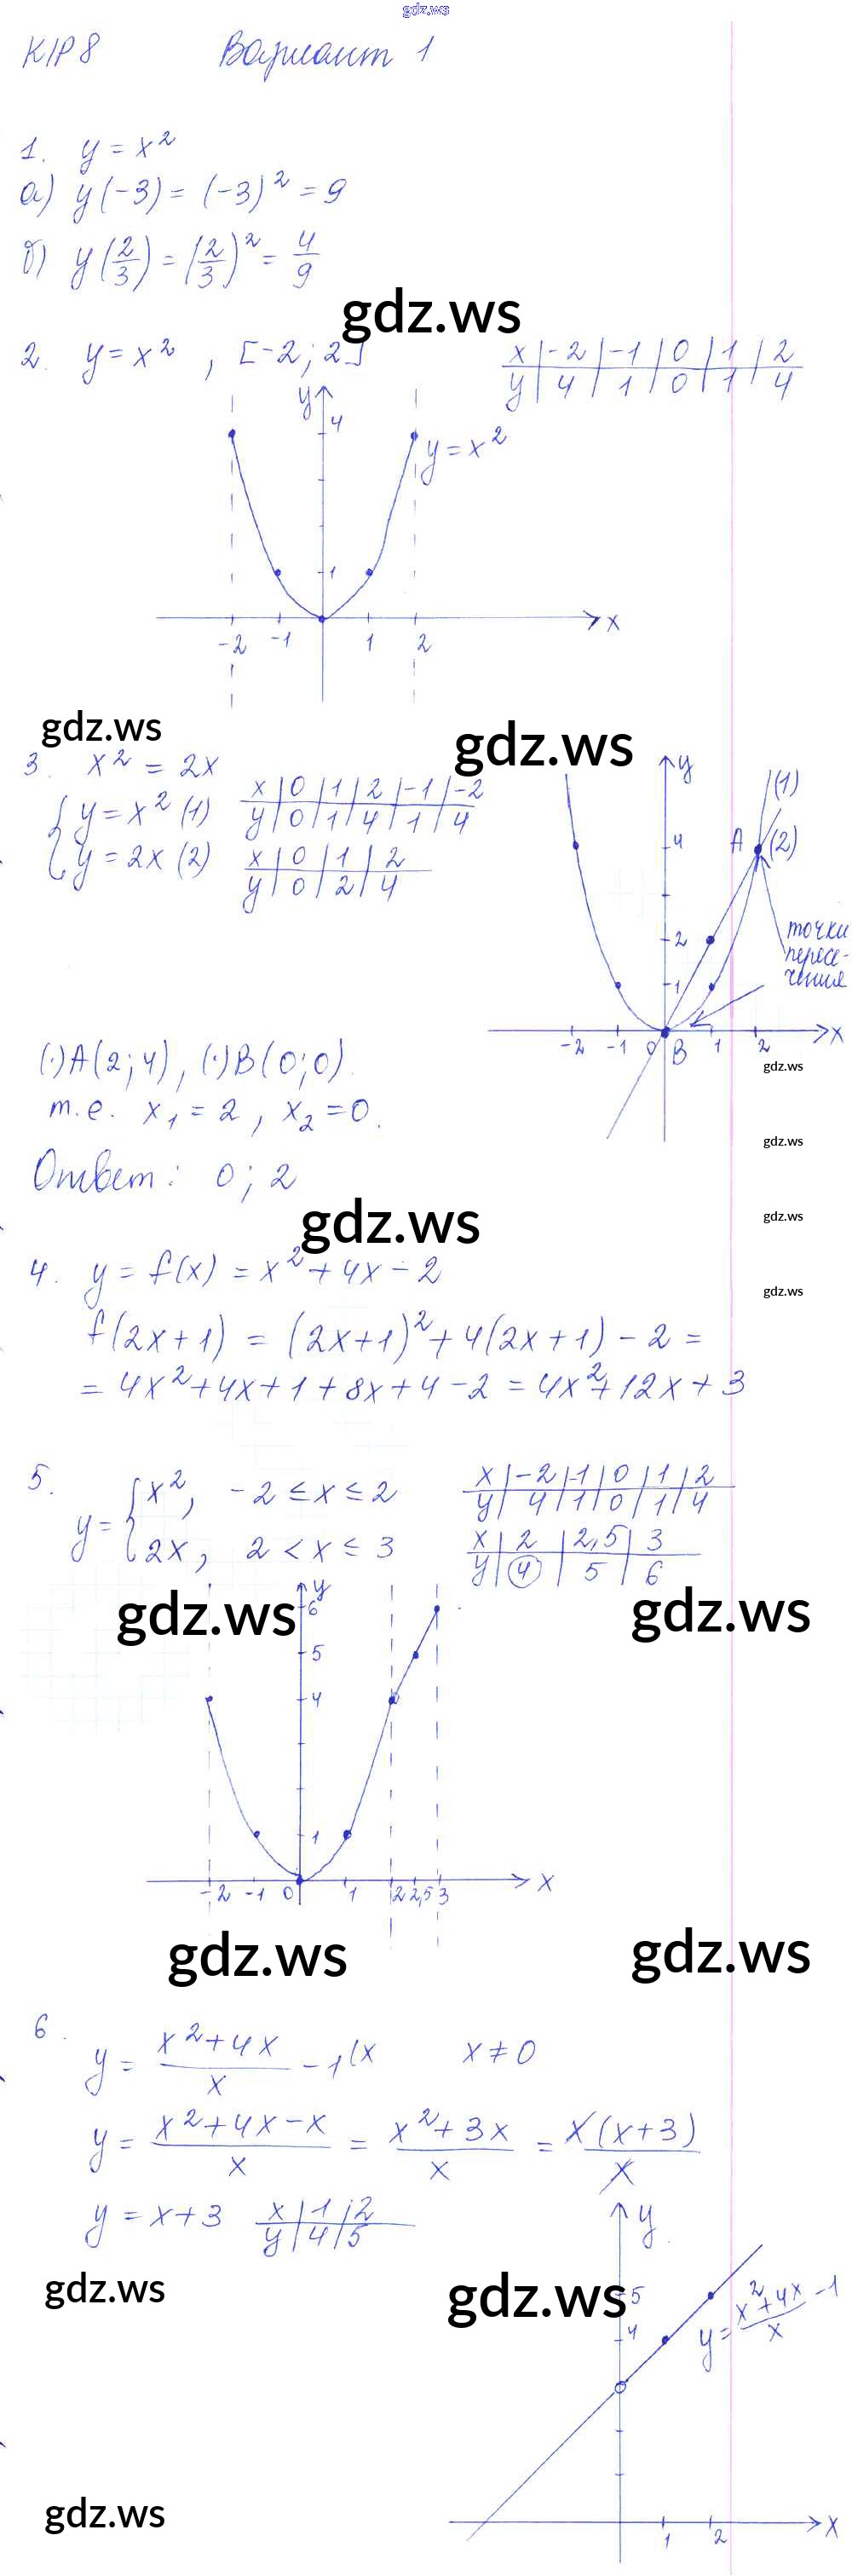 gdz.ws
К/Р 8 Вариант 1
1. y = x²
а) y(-3) = (-3)² = 9
б) y(2/3) = (2/3)² = 4/9
gdz.ws
2. y = x², [-2; 2]
x | -2 | -1 | 0 | 1 | 2
y | 4 | 1 | 0 | 1 | 4
y
4
y = x²
1
-2 -1 1 2 x
gdz.ws
gdz.ws
3. x² = 2x
{ y = x² (1)
x | 0 | 1 | 2 | -1 | -2
y | 0 | 1 | 4 | 1 | 4
y = 2x (2)
x | 0 | 1 | 2
y | 0 | 2 | 4
y
(1)
4 A (2)
2
точки
пересе-
чения
1
-2 -1 0 B 1 2 x
(·)A(2; 4), (·)B(0; 0).
т.е. x₁ = 2, x₂ = 0.
Ответ: 0; 2
gdz.ws
gdz.ws
gdz.ws
gdz.ws
gdz.ws
4. y = f(x) = x² + 4x - 2
f(2x+1) = (2x+1)² + 4(2x+1) - 2 =
= 4x² + 4x + 1 + 8x + 4 - 2 = 4x² + 12x + 3
5. y = { x², -2 ≤ x ≤ 2
2x, 2 < x ≤ 3
x | -2 | -1 | 0 | 1 | 2
y | 4 | 1 | 0 | 1 | 4
x | 2 | 2,5 | 3
y | 4 | 5 | 6
gdz.ws
gdz.ws
y
6
5
4
1
-2 -1 0 1 2 2,5 3 x
gdz.ws
gdz.ws
6. y = (x² + 4x)/x - 1(x x ≠ 0
y = (x² + 4x - x)/x = (x² + 3x)/x = x(x+3)/x
y = x + 3
x | 1 | 2
y | 4 | 5
gdz.ws
gdz.ws
y
5
4
y = (x² + 4x)/x - 1
1 2 x
gdz.ws